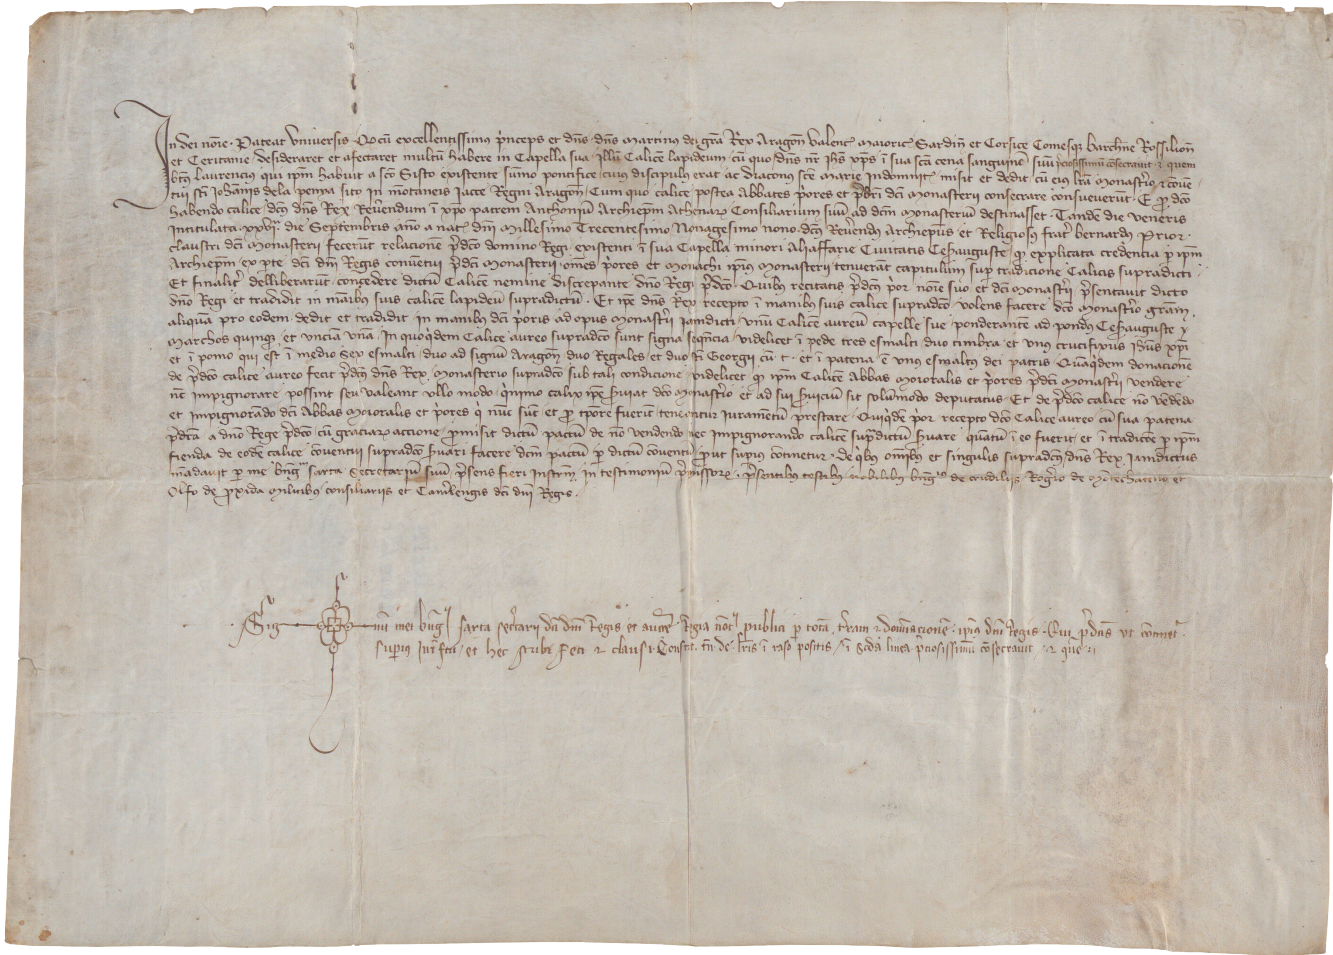 In dei noie. Pateat Universis Qd cu excellentissimus princeps et dns. dns Martinus dei gra Rex Aragon Valenc Maioric Sardin et Corsice Comesq barchne Rossilion
et Ceritanie desideraret et afectaret multu habere in Capella sua illu Calice lapideum cu quo dns nr Jhs xps i sua sca cena sanguine suu preciosissimu cosecravit. et quem
btus Laurencius qui ipm habuit a sco Sisto existente sumo pontifice cuius discipulus erat ac diaconus sce Marie indomnica misit et dedit cu eius lra Monasterio et cove
tui sti Johannis dela penya sito in motaneis Jacce Regni Aragon. Cum quo calice postea Abbates priores et presbri dci Monasterii consecrare consueverut. Et pro dco
habendo calice. dcus dns Rex Reverendum i xpo patrem Anthonium Archiepm Athenar Consiliarium suu ad dcm Monasteriu destinasset. Tande die veneris
intitulata xxvi. die Septembris anno a nat dni Millesimo Trecentesimo Nonagesimo nono. dcus Reverendus Archiepus et Religiosus frater bernardus Prior.
claustri dci Monasterii fecerut relacione predco domino Regi existenti i sua Capella minori Aliaffarie Civitatis Cesarauguste quod explicata credencia per ipm
Archiepm ex pte dci dni Regis conventui predci Monasterii. omes priores et Monachi ipius Monasterii tenuerat capitulum super tradicione Calicis supradicti.
Et finaliter delliberarut concedere dictu Calice nemine discrepante dno Regi predco. Quibus recitatis predcus prior noie suo et dci Monasterii presentavit dicto
dno Regi et tradidit in manibus suis calice lapideu supradictu. Et ipe dns Rex recepto i manibus suis calice supradco volens facere dco Monasterio gram
aliqua pro eodem dedit et tradidit in manibus dci prioris ad opus Monasterii iamdicti unu Calice aureu capelle sue ponderante ad pondus Cesarauguste v
marchos quinque et uncia una. In quoquidem Calice aureo supradco sunt signa sequencia videlicet i pede tres esmalti duo timbra et unus crucifixus Jhesus xpi
et i pomo qui est i medio sex esmalti duo ad signu Aragon duo Regales et duo sti Georgii cu t. et i patena e unus esmaltus dei patris. Quaquidem donacione
de predco calice aureo fecit predcus dns Rex Monasterio supradco sub tali condicione videlicet quod ipm Calice Abbas Moioralis et priores predci Monasterii vendere
nec impignorare possint seu valeant ullo modo. quinimo calix ipe serviat dco Monasterio et ad sui serviciu sit solumodo deputatus. Et de predco calice no vededo
et impignorado dci Abbas Moioralis et priores qui nuc sut et pro tpore fuerit teneantur iurametu prestare. Quiquidem prior recepto dco Calice aureo cu sua patena
predcta a dno Rege predco cu graciarum accione promisit dictu pactu de no vendendo nec impignorando calice supradictu servare quatu i eo fuerit et i tradicoe per ipm
fienda de eode calice conventui supradco servari facere dcm pactu per dictu conventu prout supius continetur. de quibus omibus et singulis supradcus dns Rex iamdictus
madavit per me bng sarta secretariu suu presens fieri instrum in testimoniu premissorum. presentibus testibus nobilibus bng de crudiliis Rogerio de Motechateno et
Olfo de proxida militibus consiliariis et Camerlengis dci dni Regis.
Sig num mei bng sarta secretarii dci dni Regis et aucte Regia not publici per tota terram et dominacione ipius dni Regis. Qui predns ut continet
supius interfui et hec scribi feci et clausi. Constat tn de lris i raso positis i scda linea preciosissimu cosecravit. et que